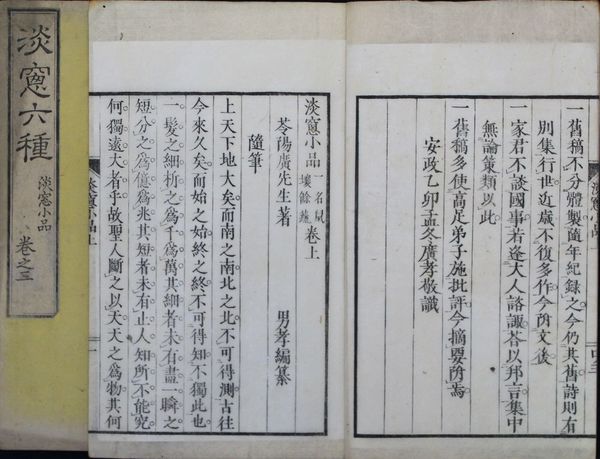 一舊稿不分體製隨年紀錄之今仍其舊詩則有
別集行世近歲不復多作今附文後
一家君不談國事若逢大人諮諏荅以邦言集中
無論策類以此
一舊稿多使高足弟子施批評今摘要附焉
安政乙卯孟冬廣孝敬識
淡窻小品 一名鼠壤餘蔬 卷上
苓陽廣先生著 男孝編纂
隨筆
上天下地大矣。而南之南北之北。不可得測。古往
今來久矣。而始之始終之終。不可得知。不獨此也。
一髮之細。析之爲千爲萬。其細者未有盡。一瞬之
短。分之爲億爲兆。其短者未有止。人知所不能究。
何獨遠大者乎。故聖人斷之以天。天之爲物。其何
淡窻小品上
一
淡窻六種
淡窻小品
卷之三